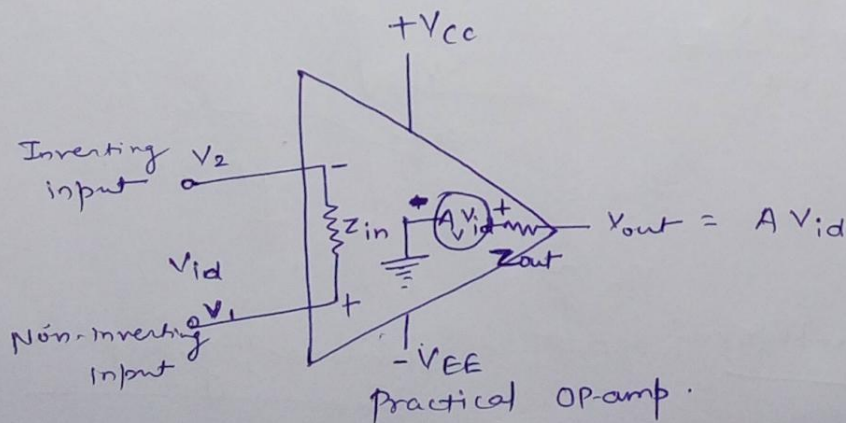 +VCC
Inverting
input
V2
-
Zin
AVid
+
Vout = A Vid
Zout
Vid
V1
+
Non-inverting
input
-VEE
Practical OP-amp.